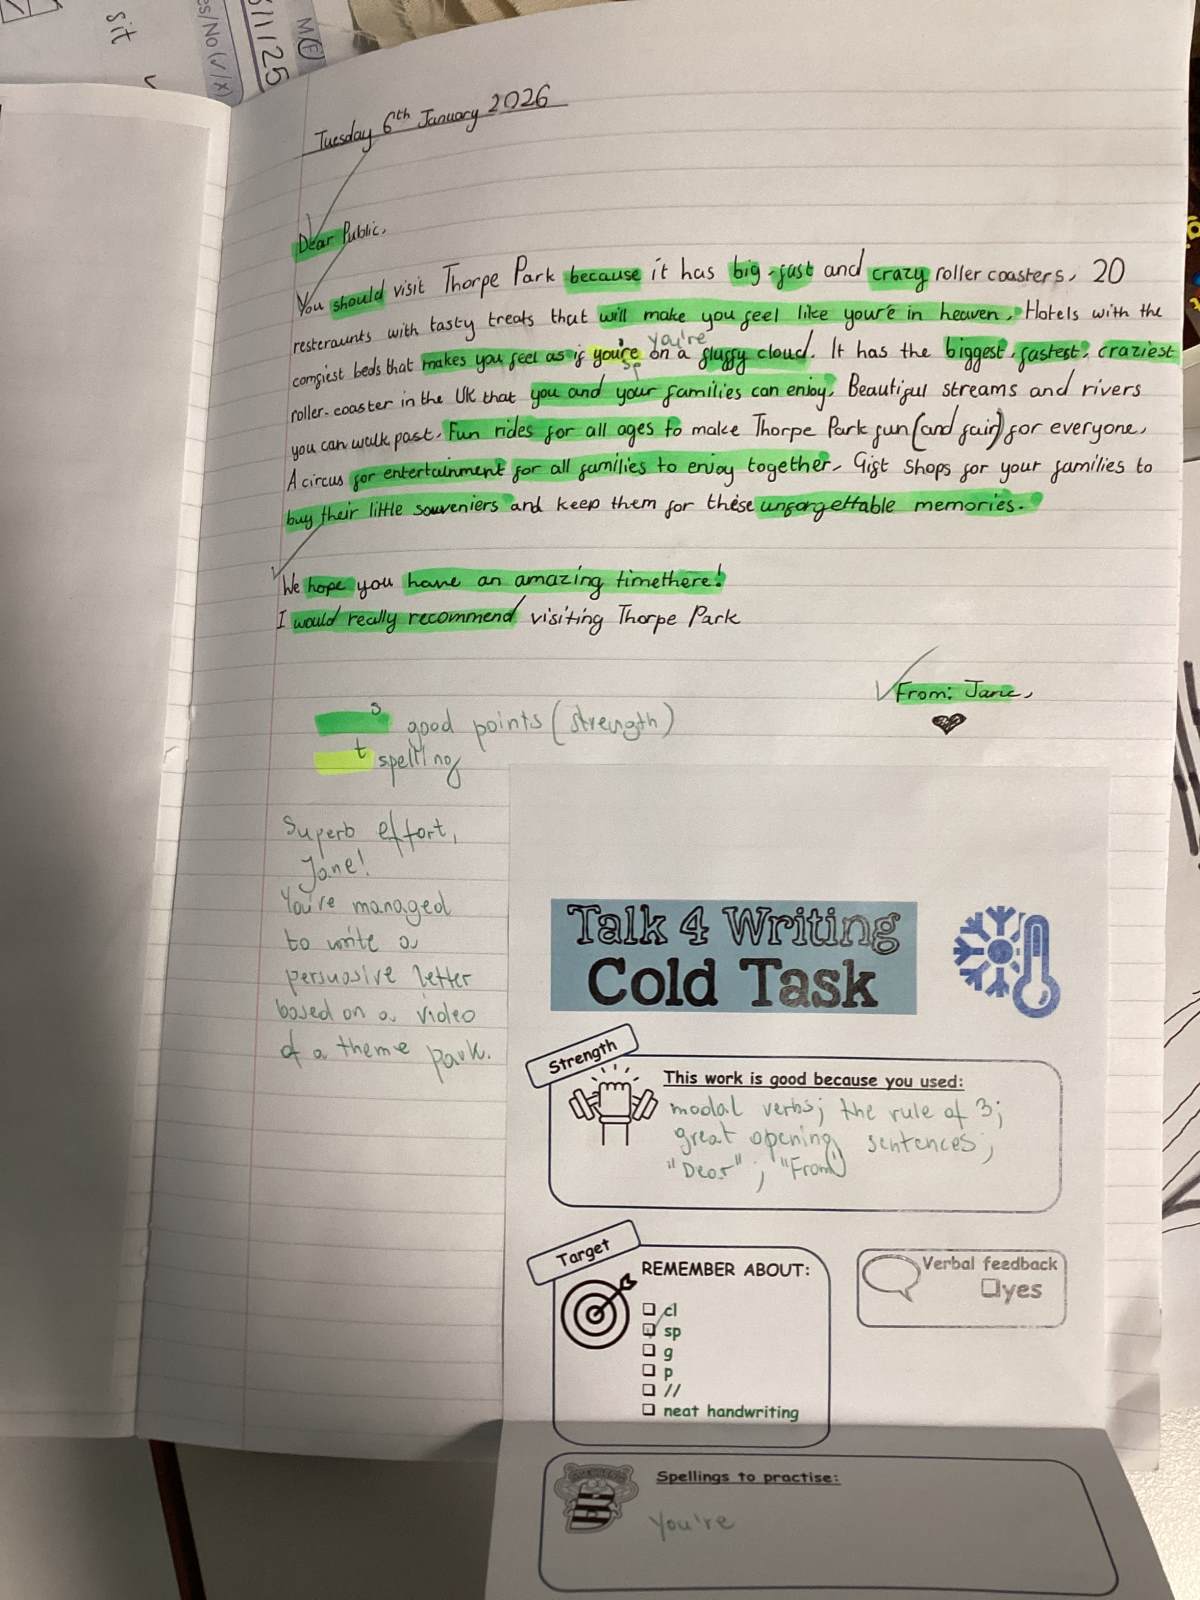 sit
es/No (✓/x)
5/1/25
M F
Tuesday 6th January 2026
Dear Public,
You should visit Thorpe Park because it has big, fast and crazy roller coasters, 20
resteraunts with tasty treats that will make you feel like youre in heaven, Hotels with the
comfiest beds that makes you feel as if you're on a fluffy cloud. It has the biggest, fastest, craziest
you're
sp
roller-coaster in the UK that you and your families can enjoy, Beautiful streams and rivers
you can walk past, Fun rides for all ages to make Thorpe Park fun (and fair) for everyone,
A circus for entertainment for all families to enjoy together, Gift Shops for your families to
buy their little souveniers and keep them for these unforgettable memories.
We hope you have an amazing timethere!
I would really recommend visiting Thorpe Park
From: Jane,
s good points (strength)
t spelling
Superb effort,
Jane!
You've managed
to write a
persuasive letter
based on a video
of a theme park.
Talk 4 Writing
Cold Task
Strength
This work is good because you used:
modal verbs; the rule of 3;
great opening sentences;
"Dear"; "From"
Target
REMEMBER ABOUT:
cl
sp
g
p
//
neat handwriting
Verbal feedback
yes
Spellings to practise:
you're